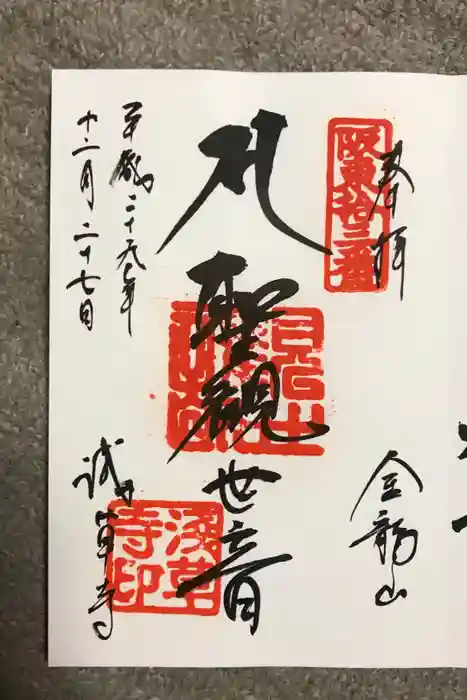 奉拝
阪東拾三番
金龍山
聖観世音
淺草寺印
平成二十九年
十二月二十七日
浅草寺